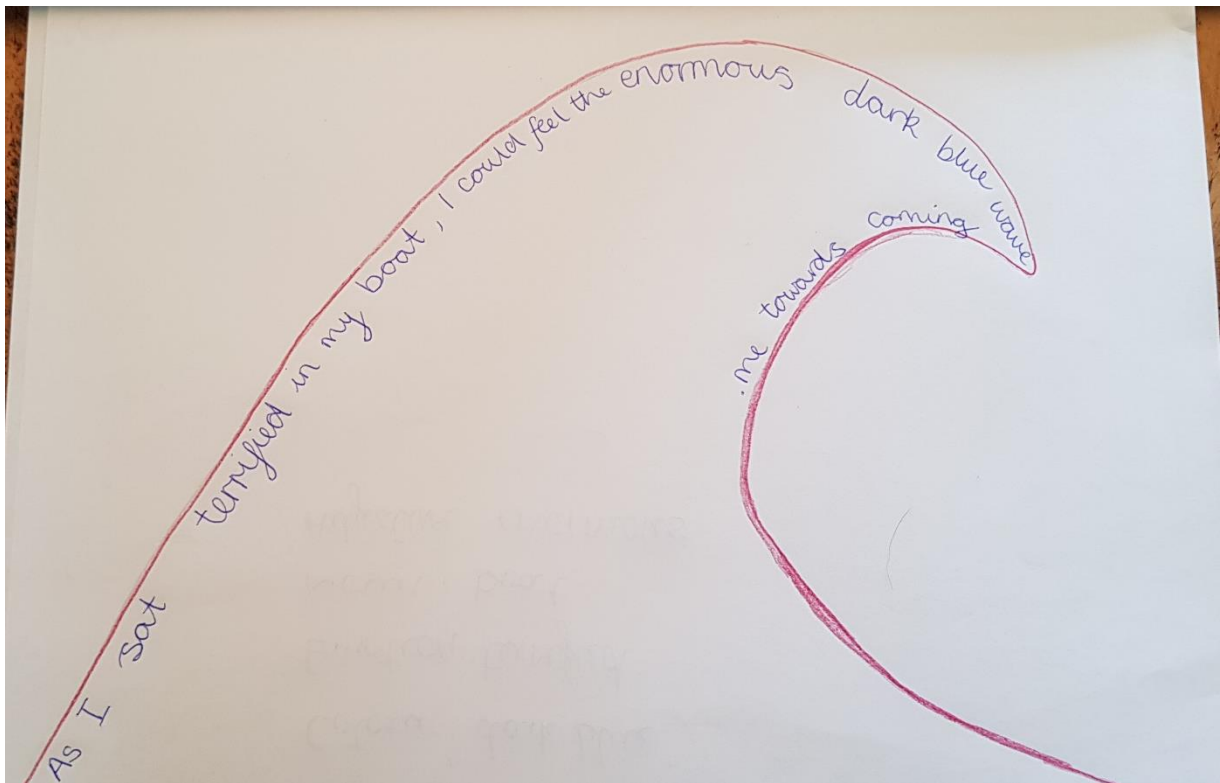 As I sat terrified in my boat, I could feel the enormous dark blue wave
coming towards me.